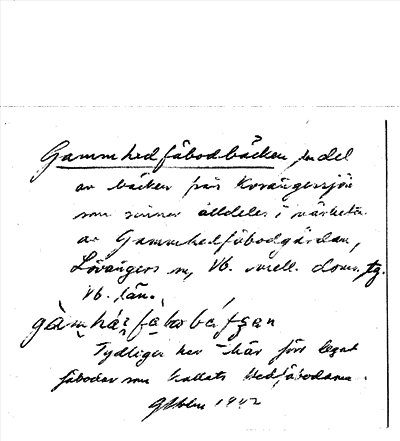 Gammhedfäbodbäcken, en del
av bäcken från Kvarängerssjön
som rinner alldeles i närheten
av Gammhedfäbodgärdan,
Lövångers sn, Vb. mell. doms. tg.
Vb. län.
Tydligen har här förr legat
fäbodar som kallats Hedfäbodarna.
1942